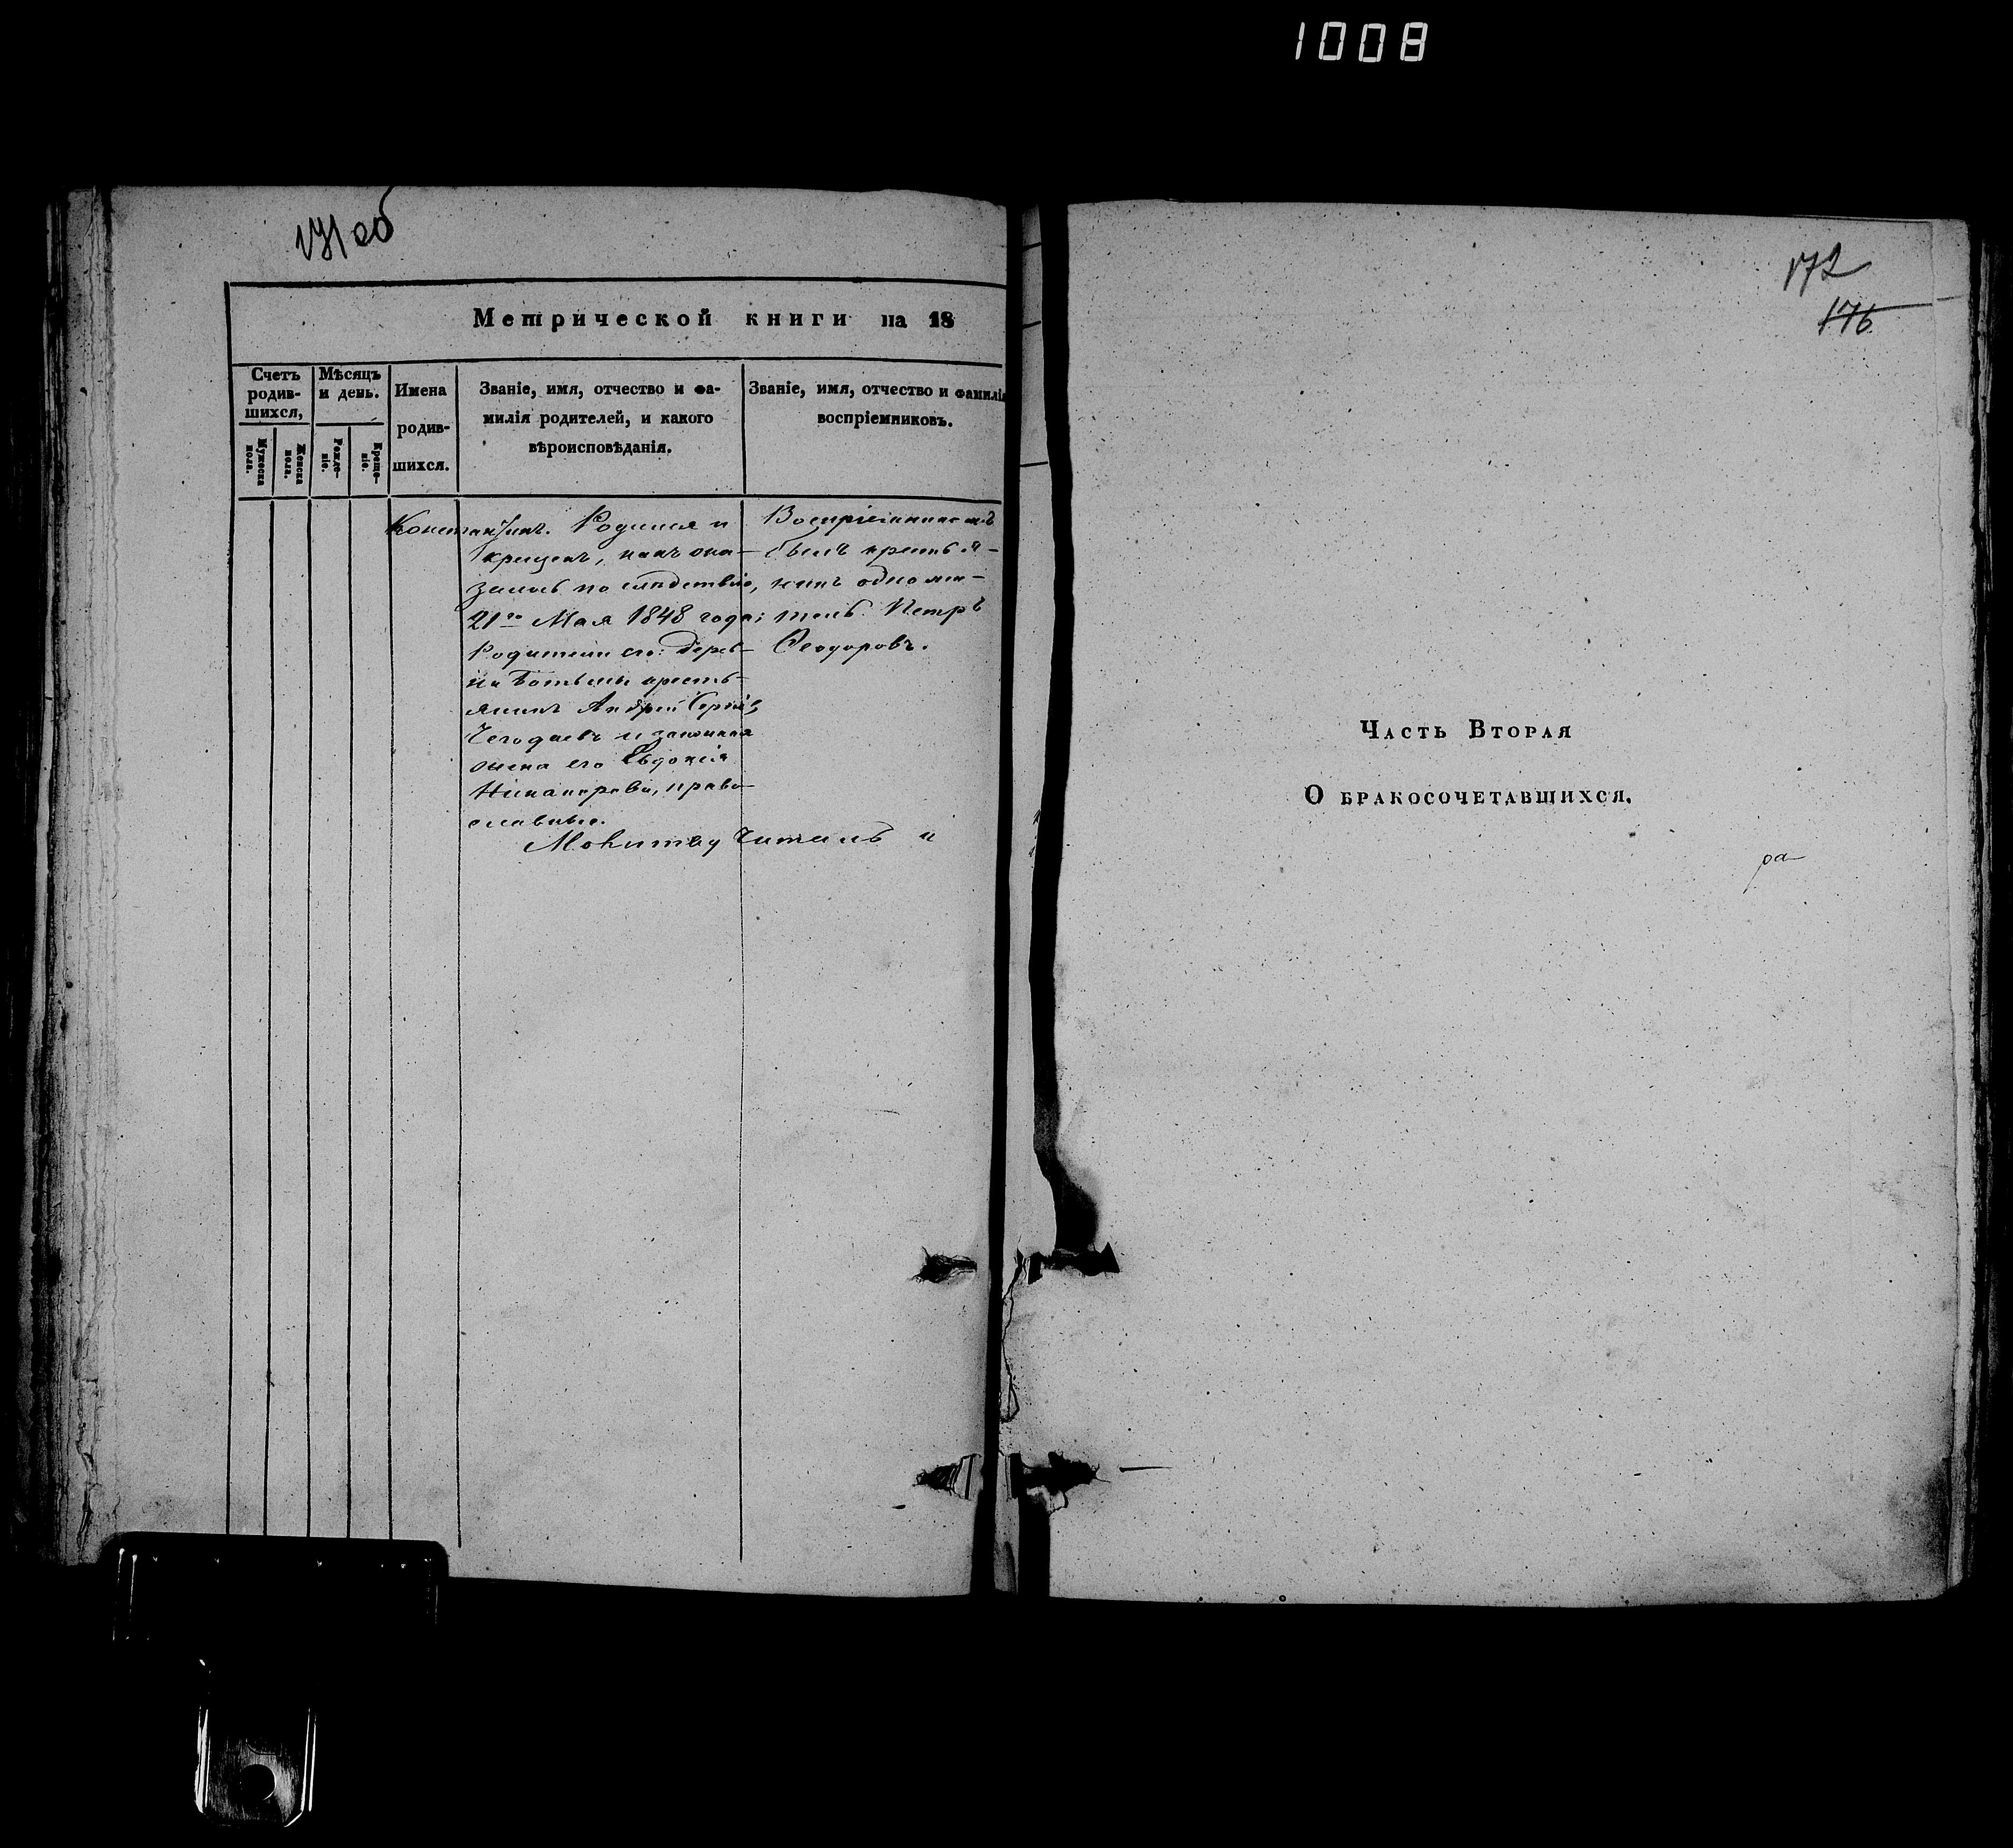 1008
171 об
Метрической книги на 18
Счетъ родив-шихся,
Мужеска пола.
Женска пола.
Мѣсяцъ и день.
Рожде-ніе.
Креще-ніе.
Имена
родив-
шихся.
Званіе, имя, отчество и фа-
милія родителей, и какого
вѣроисповѣданія.
Званіе, имя, отчество и фамилія
воспріемниковъ.
Константинъ. Родился и
крещенъ, какъ ока-
залось по слѣдствію,
21го Мая 1848 года;
Родители его: дерев-
ни крестъ-
янинъ Андрей
Чегодаевъ и законная
жена его Евдокія
Никанорова, право-
славные.
Воспріемникомъ
былъ крестья-
нинъ
Петръ
Ѳеодоровъ.
Молитву читалъ и
172
176
Часть Вторая
О бракосочетавшихся.
ра